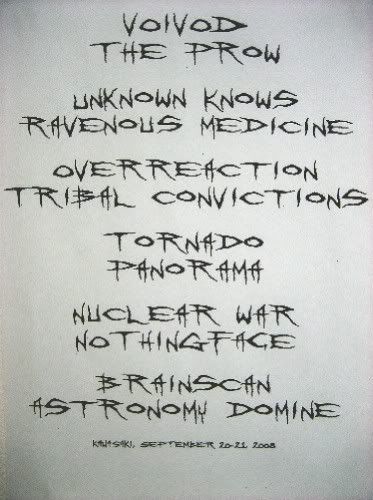 VOIVOD
THE PROW
UNKNOWN KNOWS
RAVENOUS MEDICINE
OVERREACTION
TRIBAL CONVICTIONS
TORNADO
PANORAMA
NUCLEAR WAR
NOTHINGFACE
BRAINSCAN
ASTRONOMY DOMINE
KAWASAKI, SEPTEMBER 20-21 2008